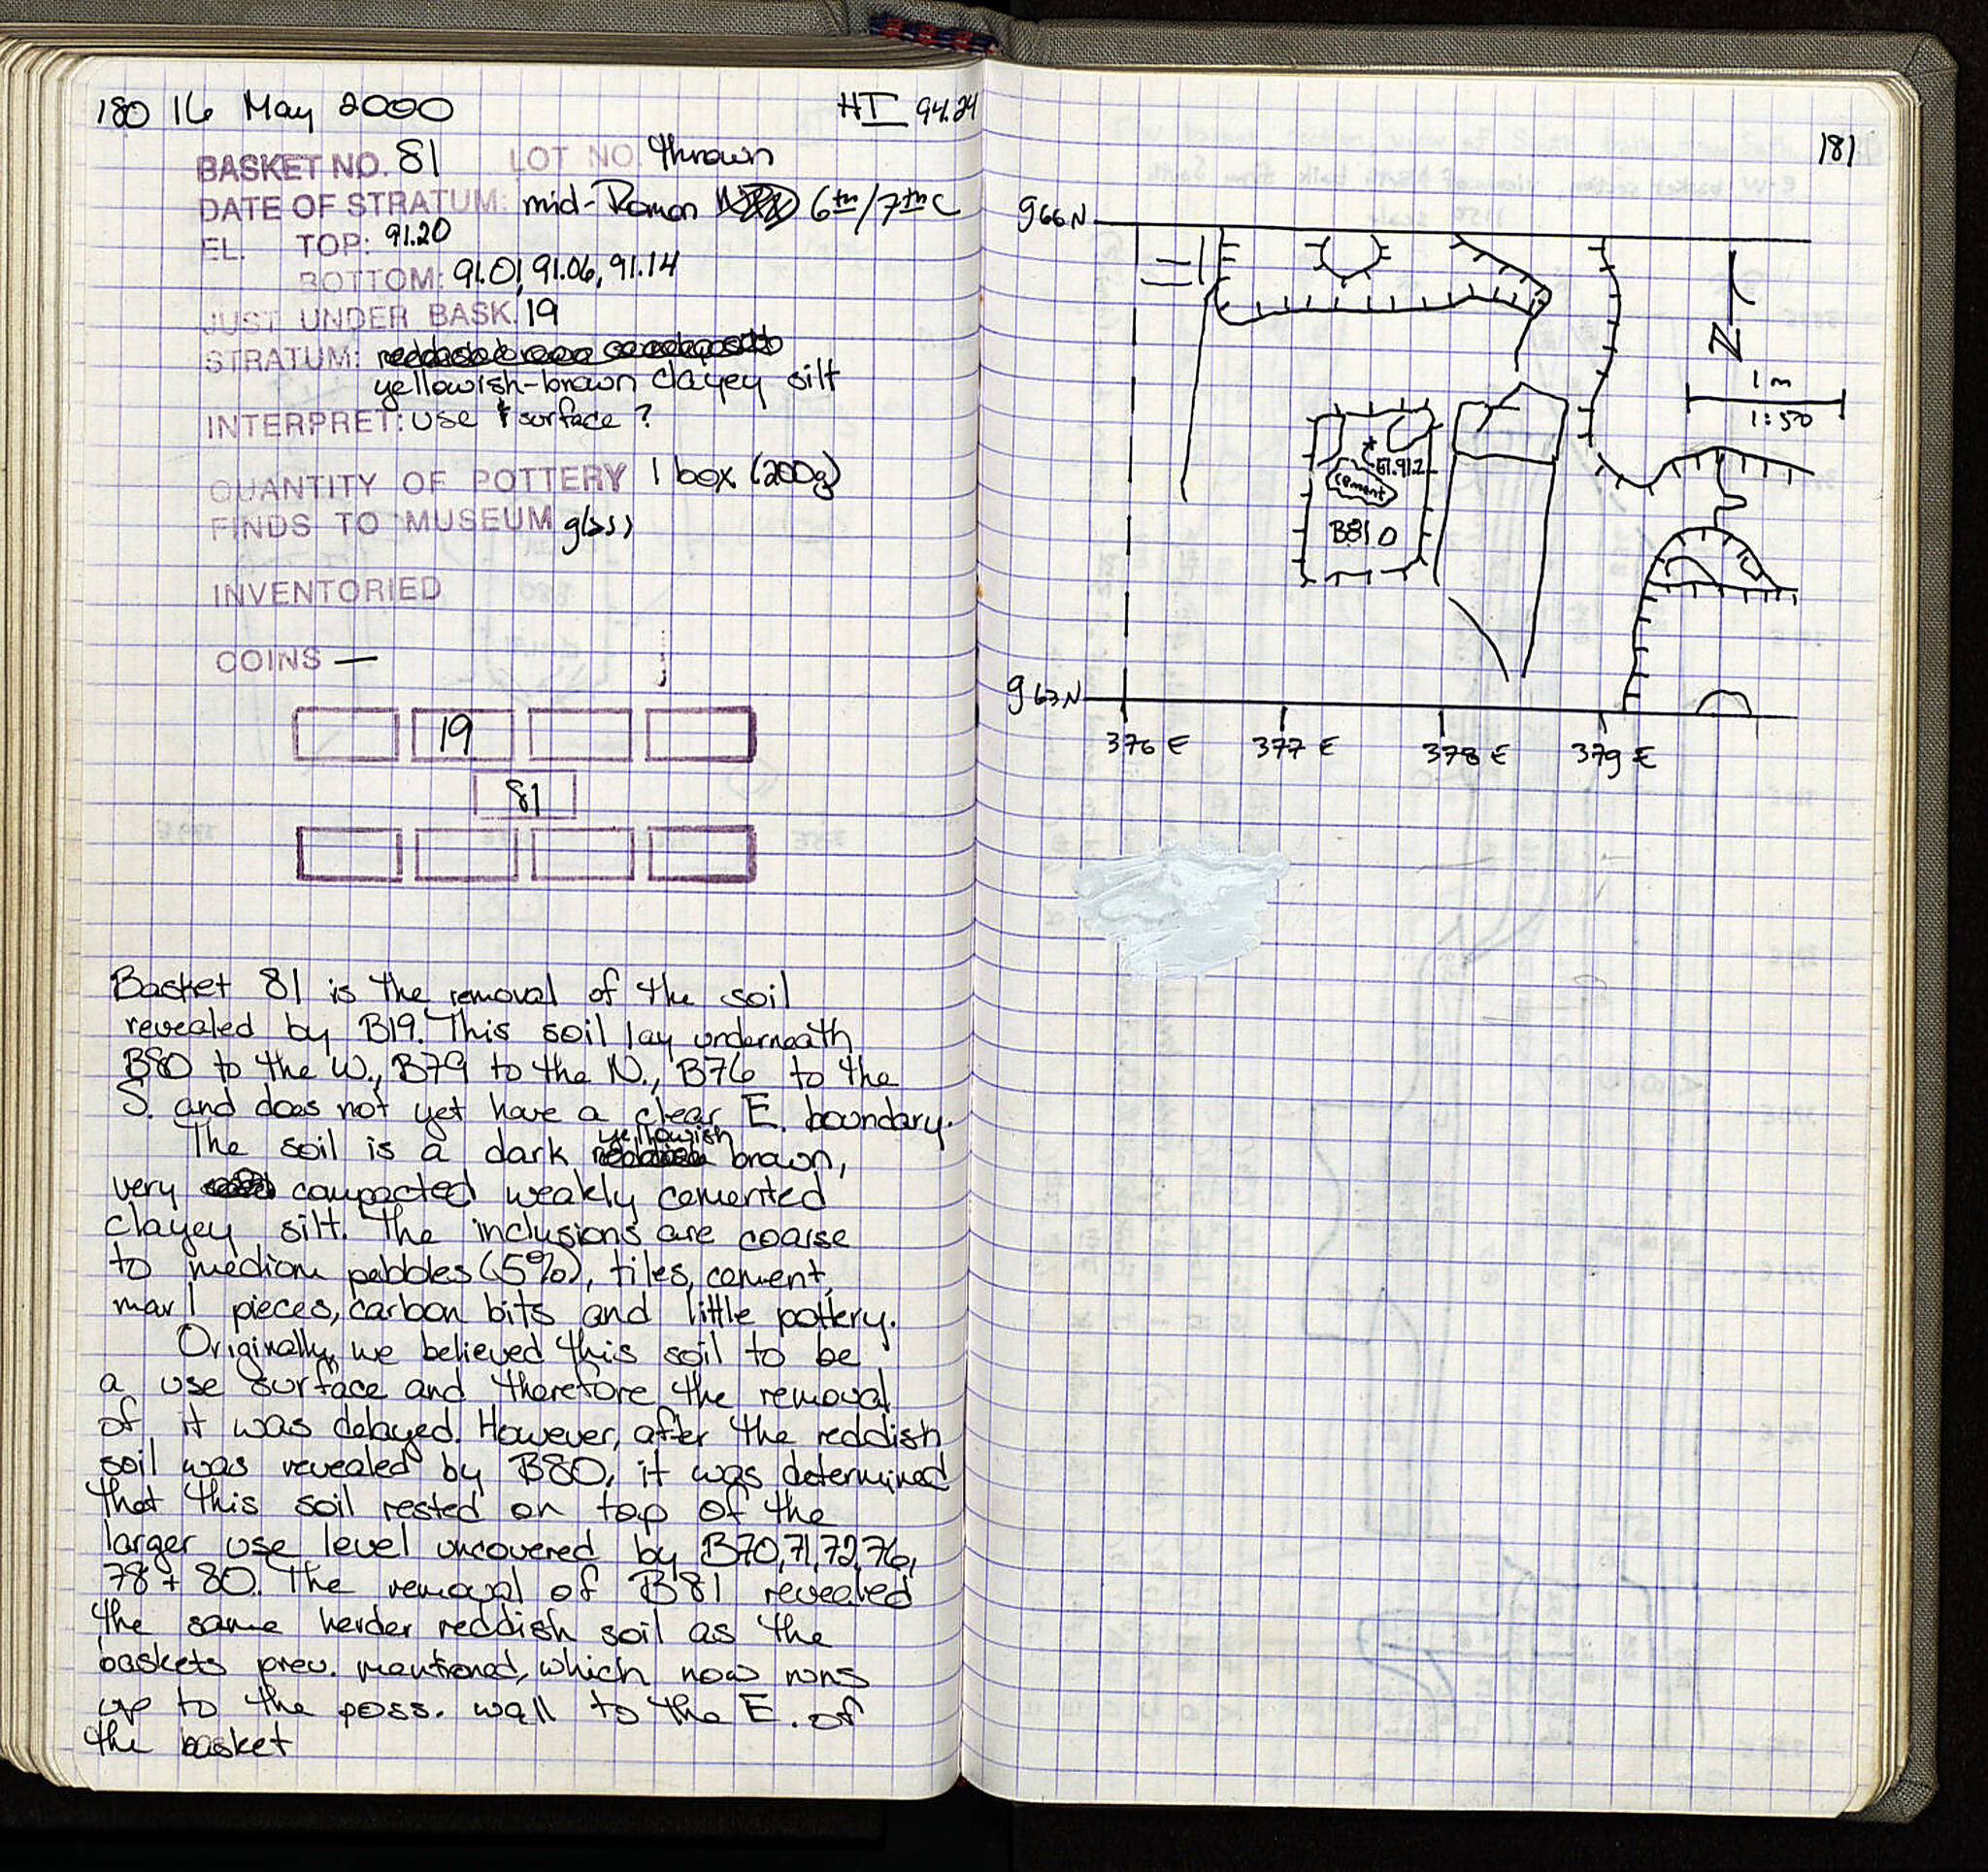 180 16 May 2000 HI 94.24
BASKET NO. 81 LOT NO. thrown
DATE OF STRATUM: mid-Roman 6th/7th C
EL. TOP: 91.20
BOTTOM: 91.01, 91.06, 91.14
JUST UNDER BASK. 19
STRATUM:
yellowish-brown clayey silt
INTERPRET: use surface ?
QUANTITY OF POTTERY 1 box (200g)
FINDS TO MUSEUM glass
INVENTORIED
COINS —
19
81
Basket 81 is the removal of the soil
revealed by B19. This soil lay underneath
B80 to the W., B79 to the N., B76 to the
S. and does not yet have a clear E. boundary.
The soil is a dark yellowish brown,
very compacted weakly cemented
clayey silt. The inclusions are coarse
to medium pebbles (5%), tiles, cement,
marl pieces, carbon bits and little pottery.
Originally, we believed this soil to be
a use surface and therefore the removal
of it was delayed. However, after the reddish
soil was revealed by B80, it was determined
that this soil rested on top of the
larger use level uncovered by B70,71,72,76,
78 + 80. The removal of B81 revealed
the same harder reddish soil as the
baskets prev. mentioned, which now runs
up to the poss. wall to the E. of
the basket
181
966 N
N
1 m
1:50
El. 91.2
cement
B81
963 N
376 E 377 E 378 E 379 E